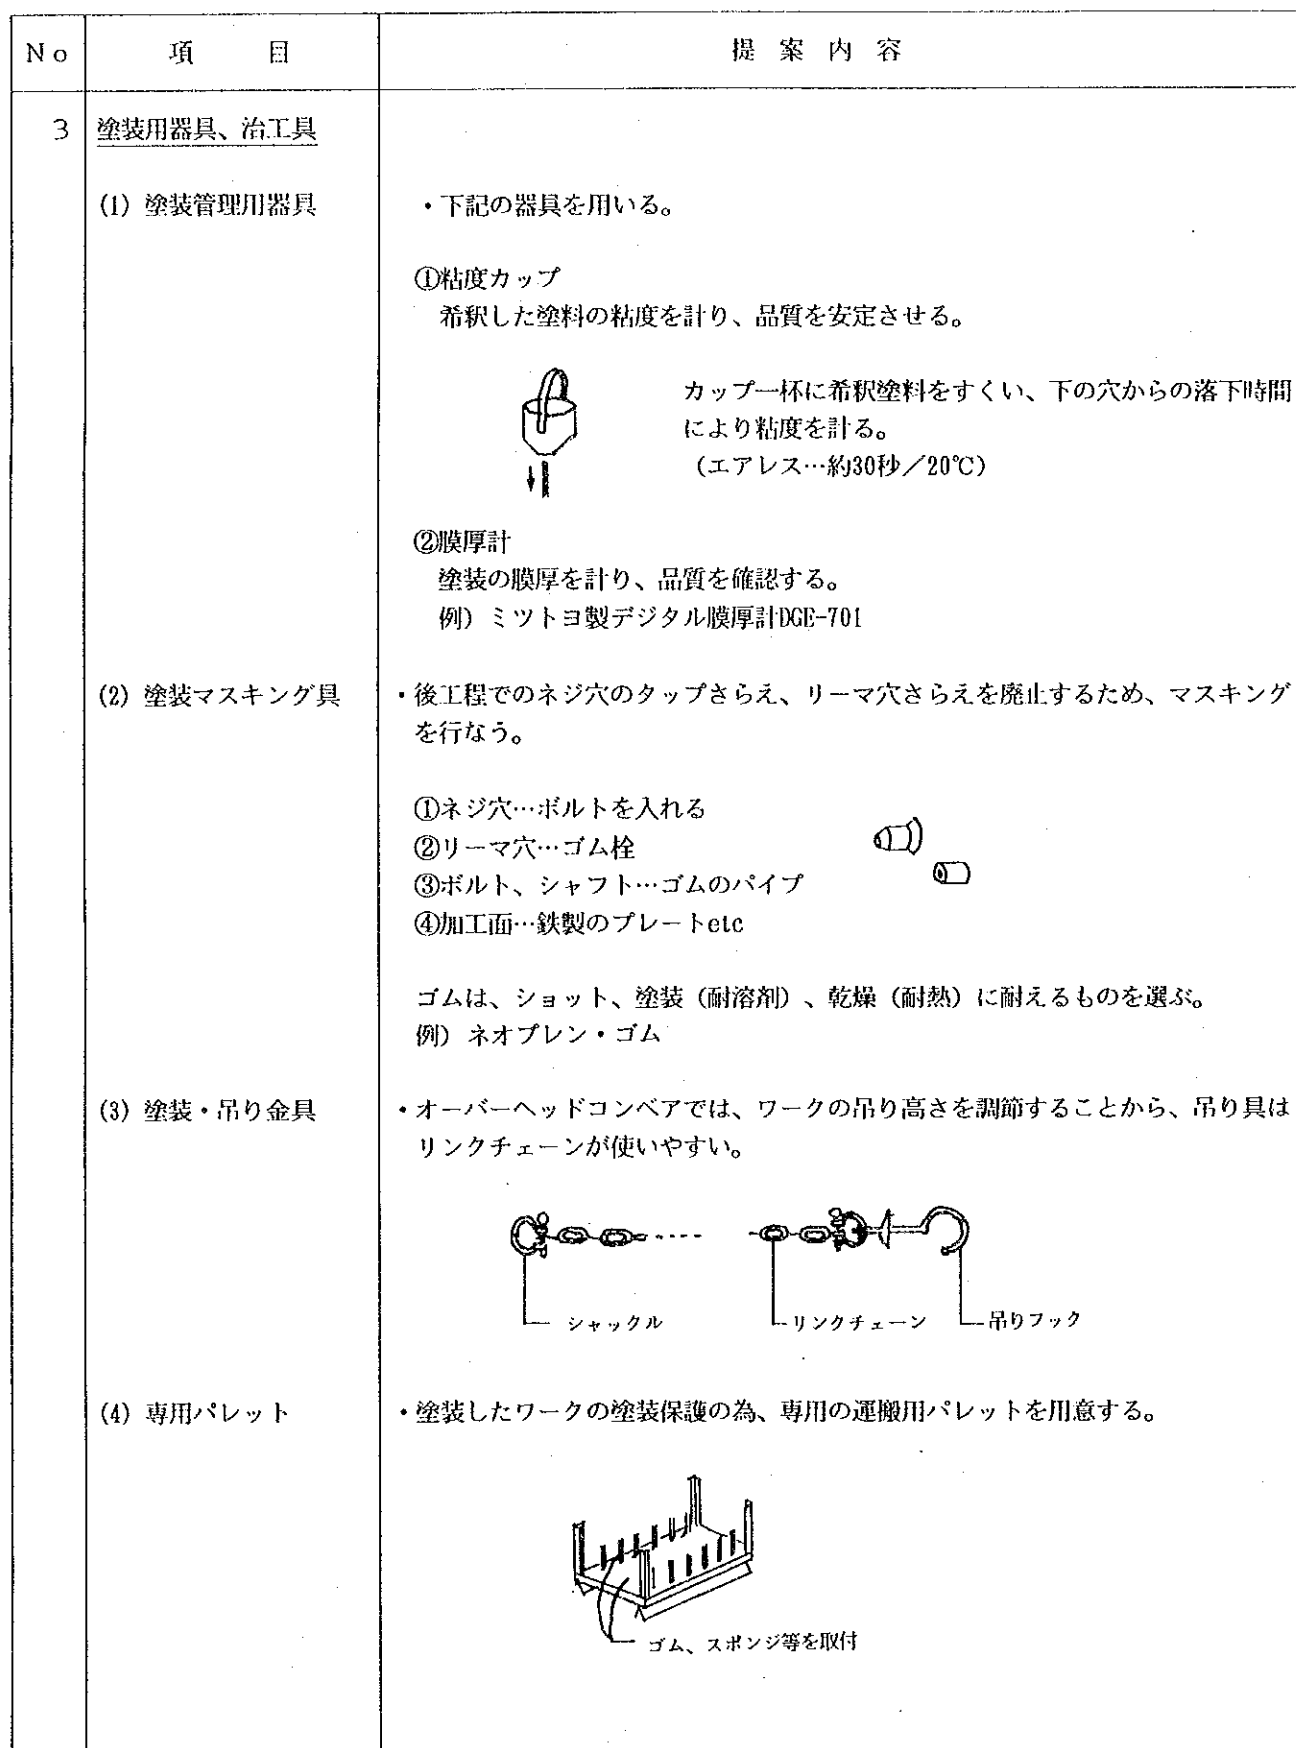 No 項目 提案内容
3 塗装用器具、治工具
(1) 塗装管理用器具 ・下記の器具を用いる。
①粘度カップ
希釈した塗料の粘度を計り、品質を安定させる。
カップ一杯に希釈塗料をすくい、下の穴からの落下時間
により粘度を計る。
(エアレス…約30秒／20℃)
②膜厚計
塗装の膜厚を計り、品質を確認する。
例）ミツトヨ製デジタル膜厚計DGE-701
(2) 塗装マスキング具 ・後工程でのネジ穴のタップさらえ、リーマ穴さらえを廃止するため、マスキング
を行なう。
①ネジ穴…ボルトを入れる
②リーマ穴…ゴム栓
③ボルト、シャフト…ゴムのパイプ
④加工面…鉄製のプレートetc
ゴムは、ショット、塗装（耐溶剤）、乾燥（耐熱）に耐えるものを選ぶ。
例）ネオプレン・ゴム
(3) 塗装・吊り金具 ・オーバーヘッドコンベアでは、ワークの吊り高さを調節することから、吊り具は
リンクチェーンが使いやすい。
シャックル リンクチェーン 吊りフック
(4) 専用パレット ・塗装したワークの塗装保護の為、専用の運搬用パレットを用意する。
ゴム、スポンジ等を取付